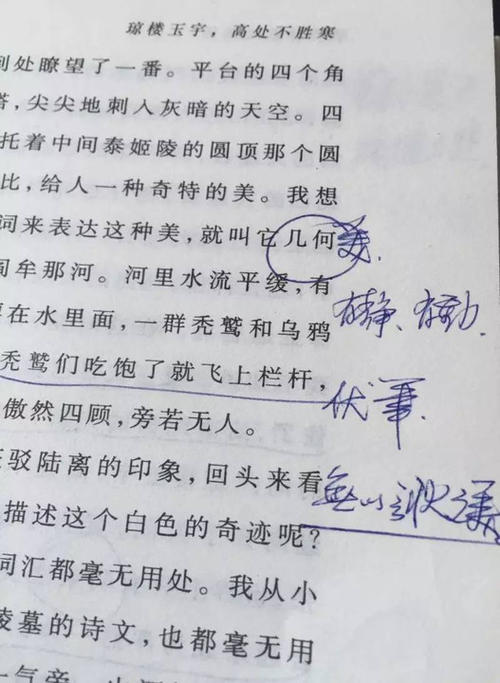 琼楼玉宇，高处不胜寒
到处瞭望了一番。平台的四个角
塔，尖尖地刺入灰暗的天空。四
托着中间泰姬陵的圆顶那个圆
比，给人一种奇特的美。我想
词来表达这种美，就叫它几何 美.
阎牟那河。河里水流平缓，有
有静、有动
在水里面，一群秃鹫和乌鸦
秃鹫们吃饱了就飞上栏杆，
伏笔.
傲然四顾，旁若无人。
驳陆离的印象，回头来看
描述这个白色的奇迹呢？
词汇都毫无用处。我从小
陵墓的诗文，也都毫无用